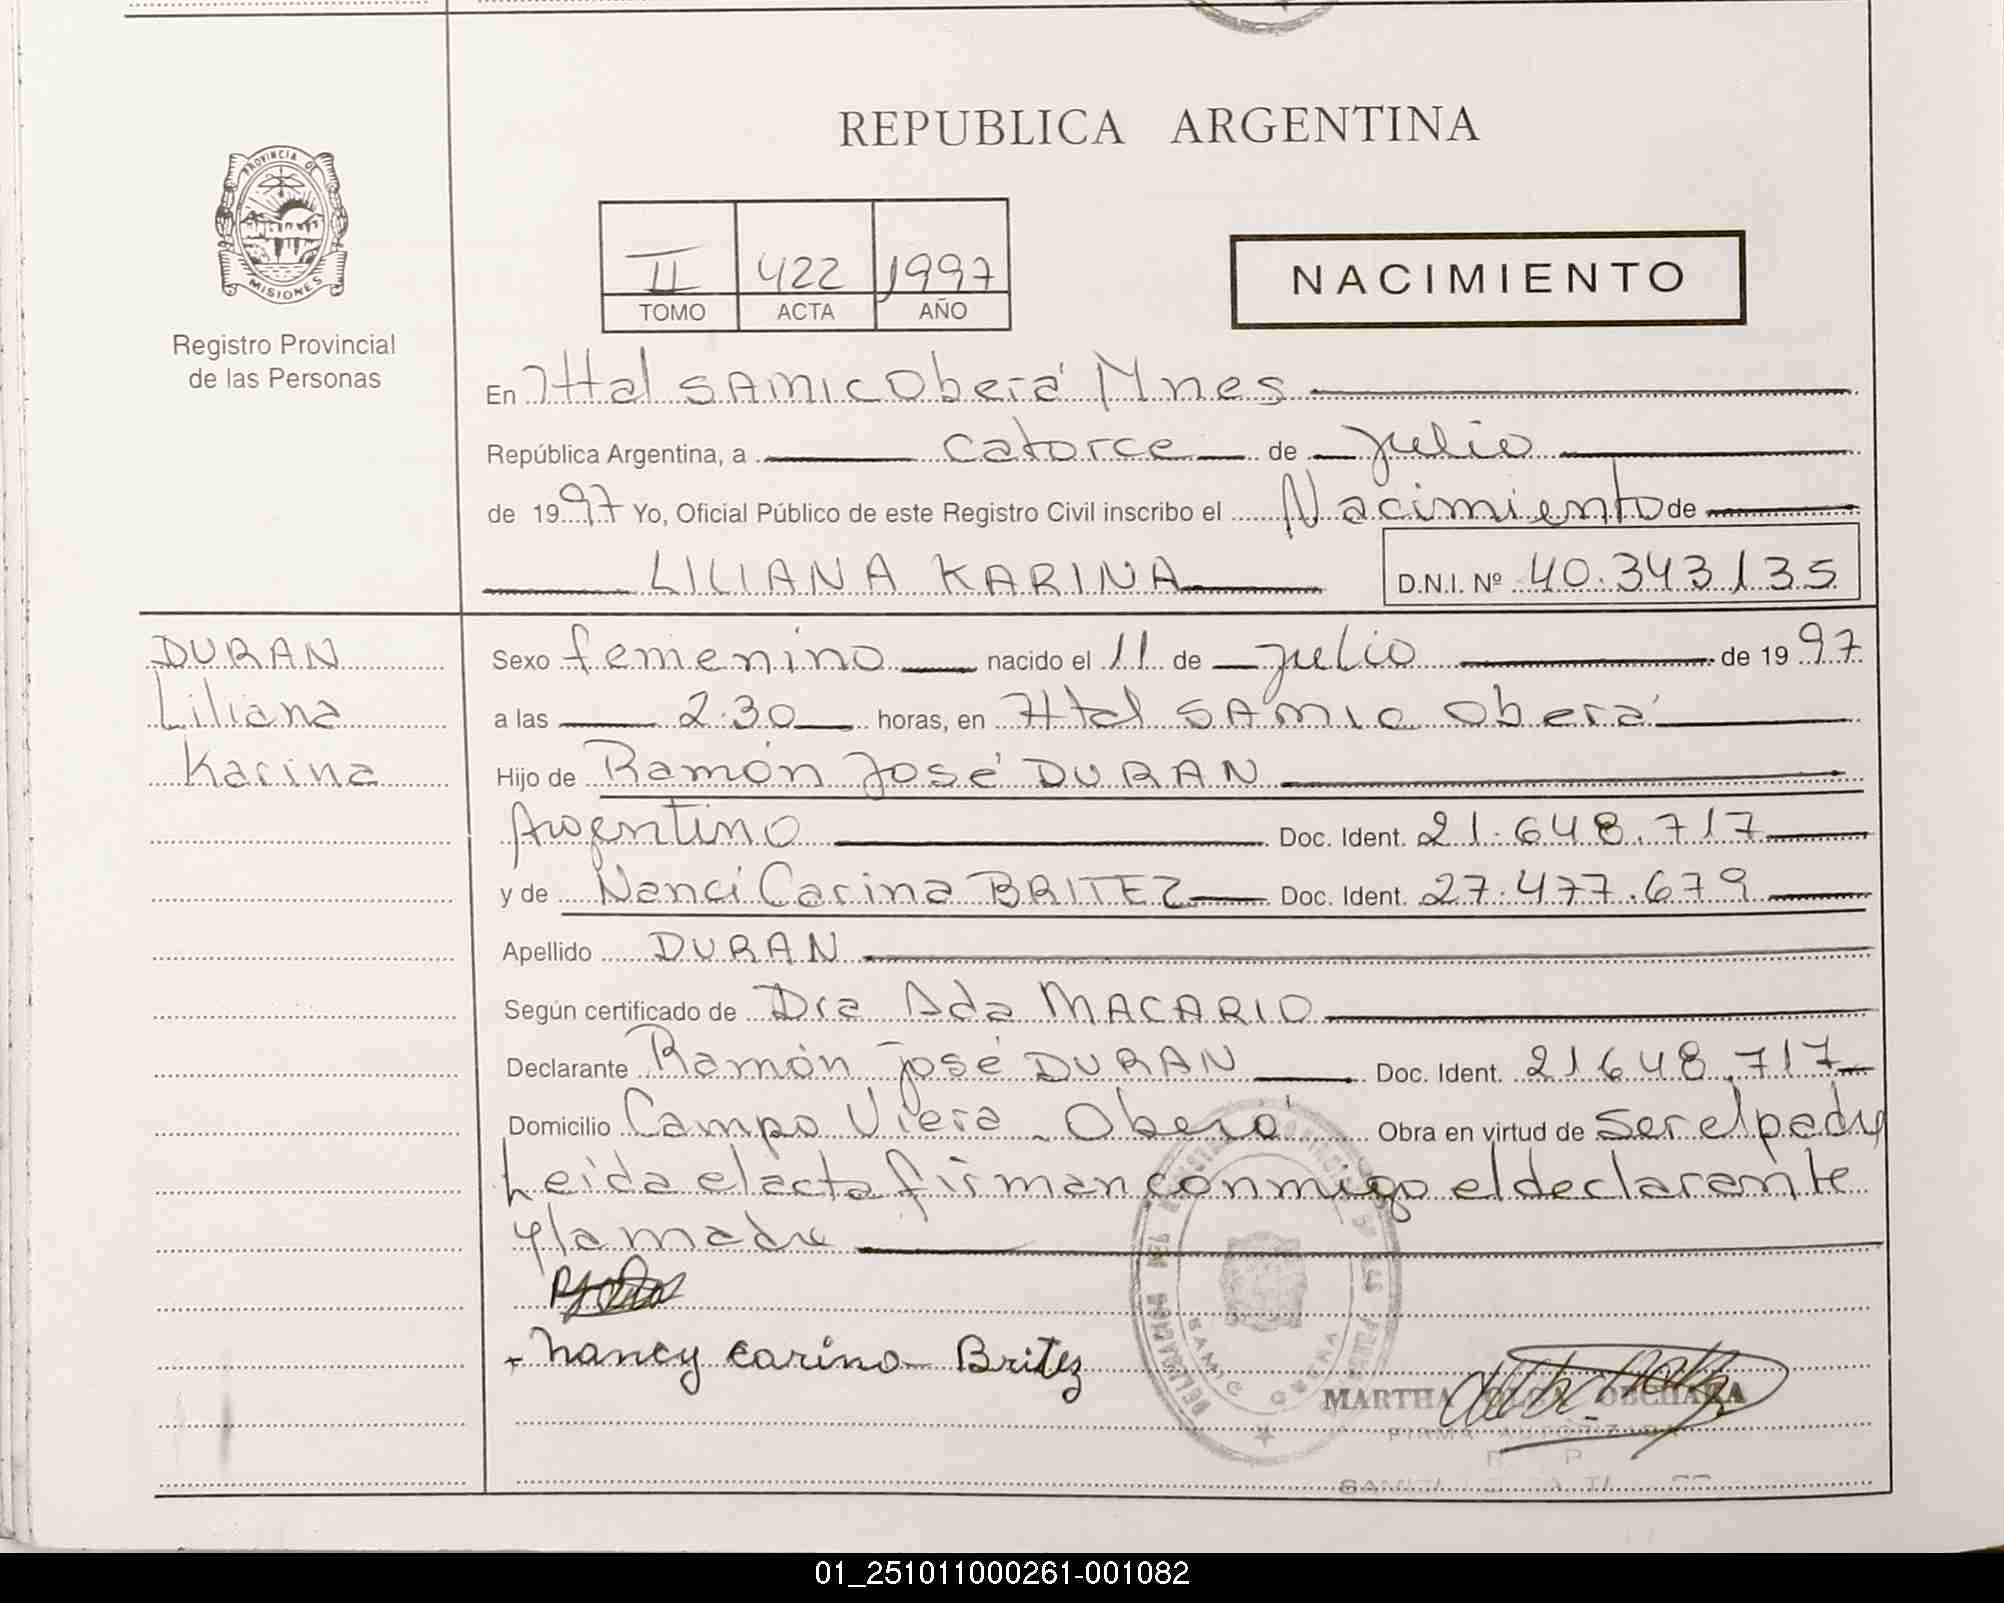 REPUBLICA ARGENTINA
PROVINCIA DE
MISIONES
Registro Provincial
de las Personas
II 422 1997
TOMO ACTA AÑO
NACIMIENTO
En Httal SAMIC Oberá Mnes
República Argentina, a catorce de julio
de 1997 Yo, Oficial Público de este Registro Civil inscribo el Nacimiento de
LILIANA KARINA D.N.I. Nº 40.343.135
DURAN
Liliana
Karina
Sexo femenino nacido el 11 de julio de 1997
a las 2.30 horas, en Httal SAMIC Oberá
Hijo de Ramón José DURAN
Argentino Doc. Ident. 21.648.717
y de Nanci Carina BRITEZ Doc. Ident. 27.477.679
Apellido DURAN
Según certificado de Dra Ada MACARIO
Declarante Ramón José DURAN Doc. Ident. 21648.717
Domicilio Campo Viera - Oberá Obra en virtud de ser el padre
Leída el acta firman conmigo el declarante
y la madre
Nancy Carina Britez
MARTHA
FIRMA AUTORIZADA
01_251011000261-001082